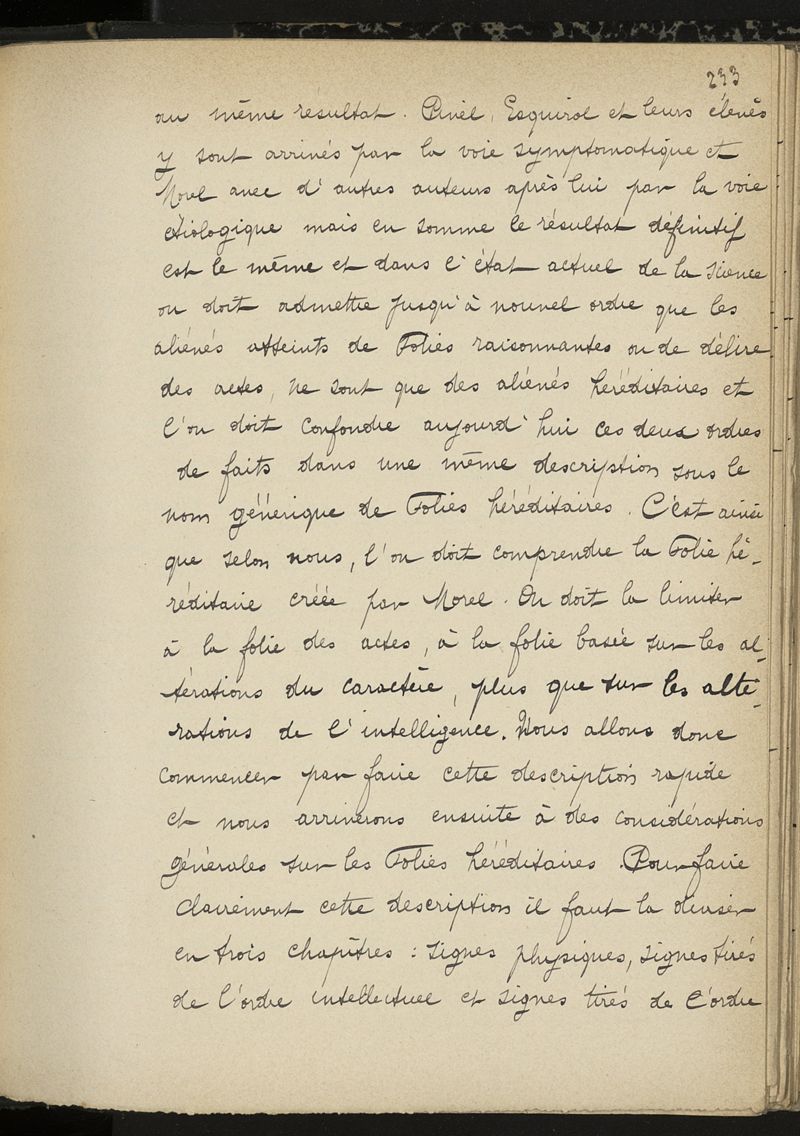 233
au même résultat. Pinel, Esquirol et leurs élevés
y sont arrivés par la voie symptomatique et
Morel avec d'autres auteurs après lui par la voie
étiologique mais en somme le résultat définitif
est le même et dans l'état actuel de la science
on doit admettre jusqu'à nouvel ordre que les
aliénés atteints de Folies raisonnantes ou de délire
des actes, ne sont que des aliénés héréditaires et
l'on doit confondre aujourd'hui ces deux ordres
de faits dans une même description sous le
nom générique de Folies héréditaires. C'est ainsi
que selon nous, l'on doit comprendre la Folie hé-
réditaire créée par Morel. On doit la limiter
à la folie des actes, à la folie basée sur les al-
térations du caractère, plus que sur les alté-
rations de l'intelligence. Nous allons donc
commencer par faire cette description rapide
et nous arriverons ensuite à des considérations
générales sur les Folies héréditaires. Pour faire
clairement cette description il faut la diviser
en trois chapîtres : signes physiques, signes tirés
de l'ordre intellectuel et signes tirés de l'ordre